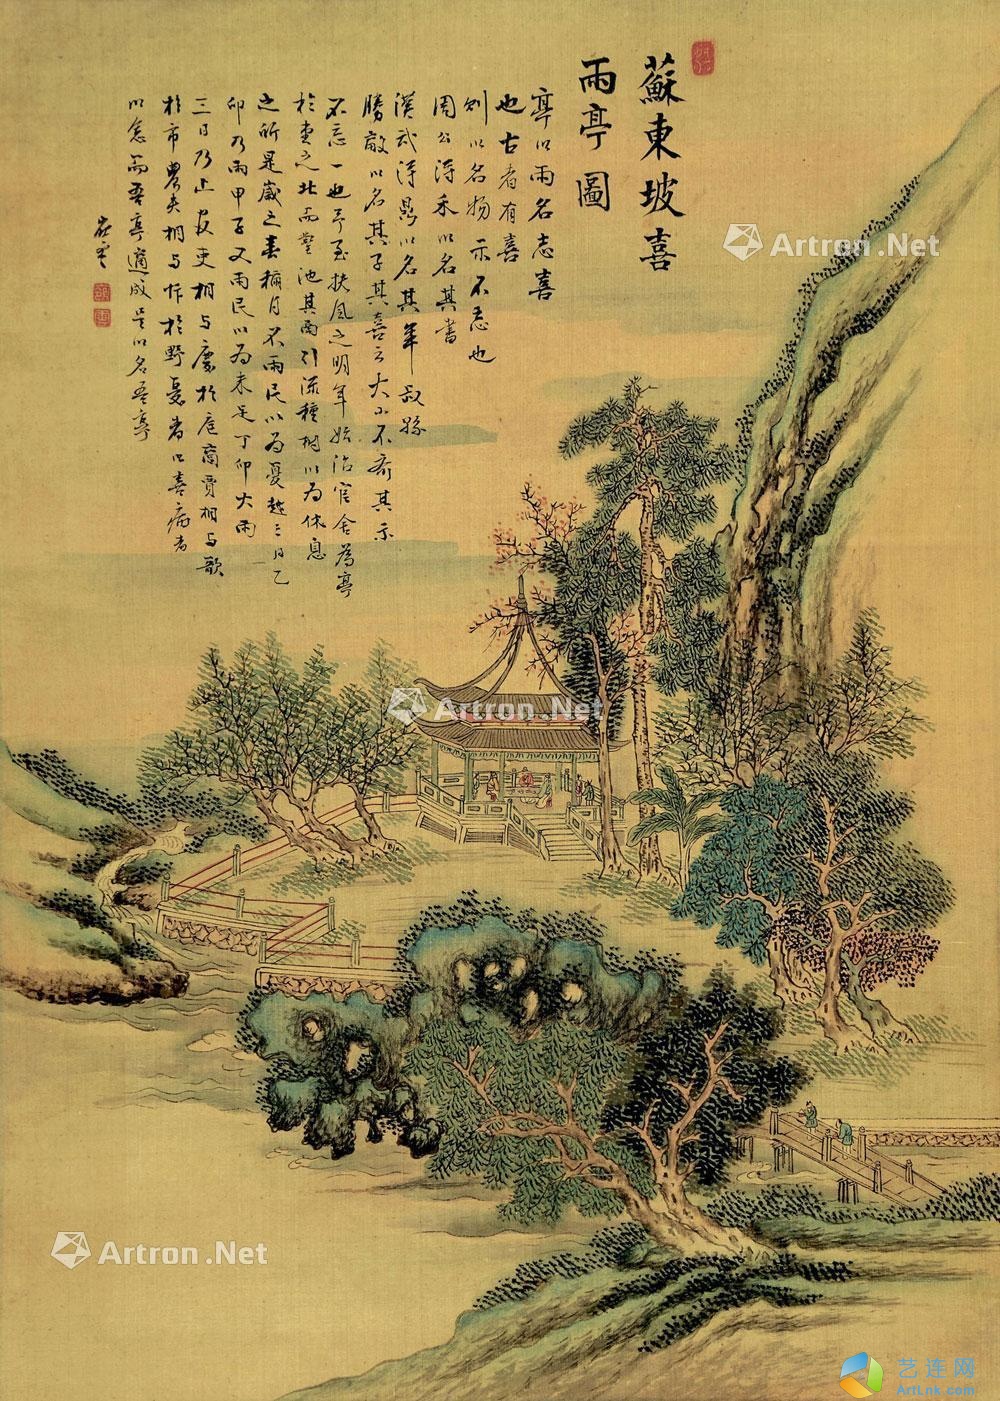 蘇東坡喜
雨亭圖
亭以雨名志喜
也古者有喜
則以名物示不忘也
周公得禾以名其書
漢武得鼎以名其年叔孫
勝敵以名其子其喜之大小不齊其示
不忘一也予至扶風之明年始治官舍為亭
於堂之北而鑿池其南引流種樹以為休息
之所是歲之春彌月不雨民以為憂越三日乙
卯乃雨甲子又雨民以為未足丁卯大雨
三日乃止官吏相与慶於庭商賈相与歌
於市農夫相与忭於野憂者以喜病者
以愈而吾亭適成是以名吾亭
Artron.Net
Artron.Net
Artron.Net
Artron.Net
艺连网
ArtLnk.com